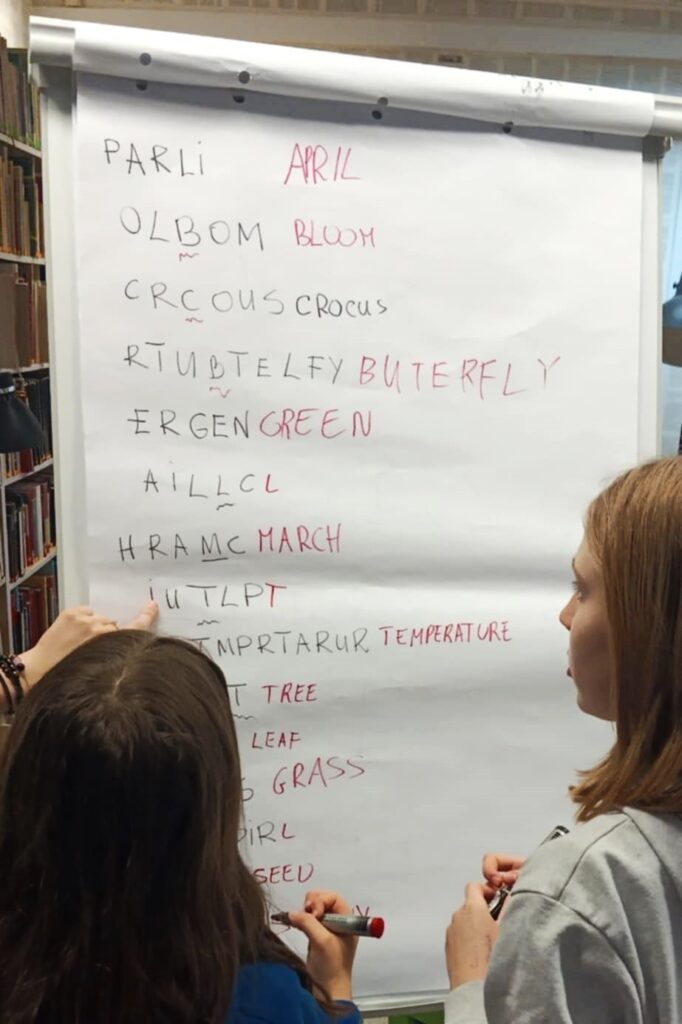 PARLi APRIL
OLBOM BLOOM
CRCOUS CROCUS
RTUBTELFY BUTERFLY
ERGEN GREEN
AiLLCL
HRAMC MARCH
iUTLPT
TMPRTARUR TEMPERATURE
T TREE
LEAF
S GRASS
iRL
SEED